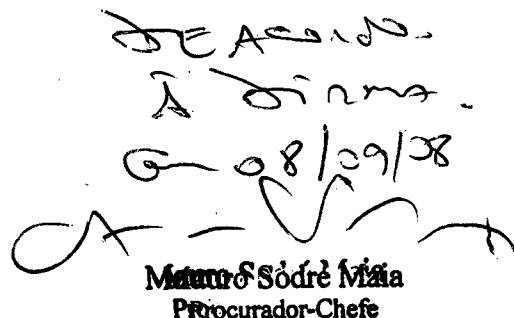 DE ACORDO.
À DIRMA.
Em 08/09/08
Mauro Sodré Maia
Procurador-Chefe